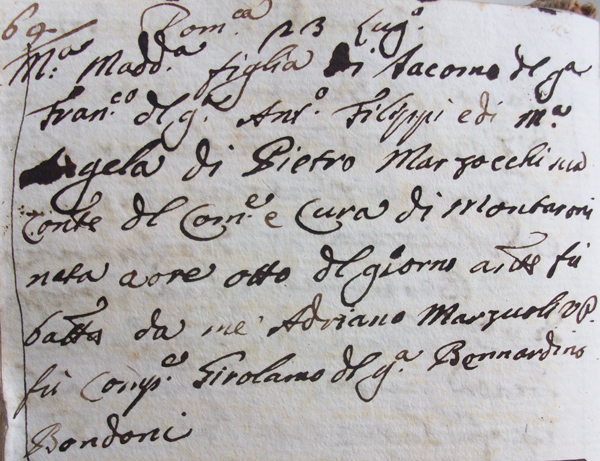 69. Dom.ca 23 Lug.o
M.a Madd.a figlia di Iacomo del q.a
Fran.co del q.a Ant.o Filippi e di M.a
Angela di Pietro Marzocchi sua
Conte del Com.e e Cura di Montaroni
nata a ore otto del giorno ante fù
batta da me Adriano Marzuoli VP.
fù Comp.e Girolamo del q.a Bernardino
Bondoni